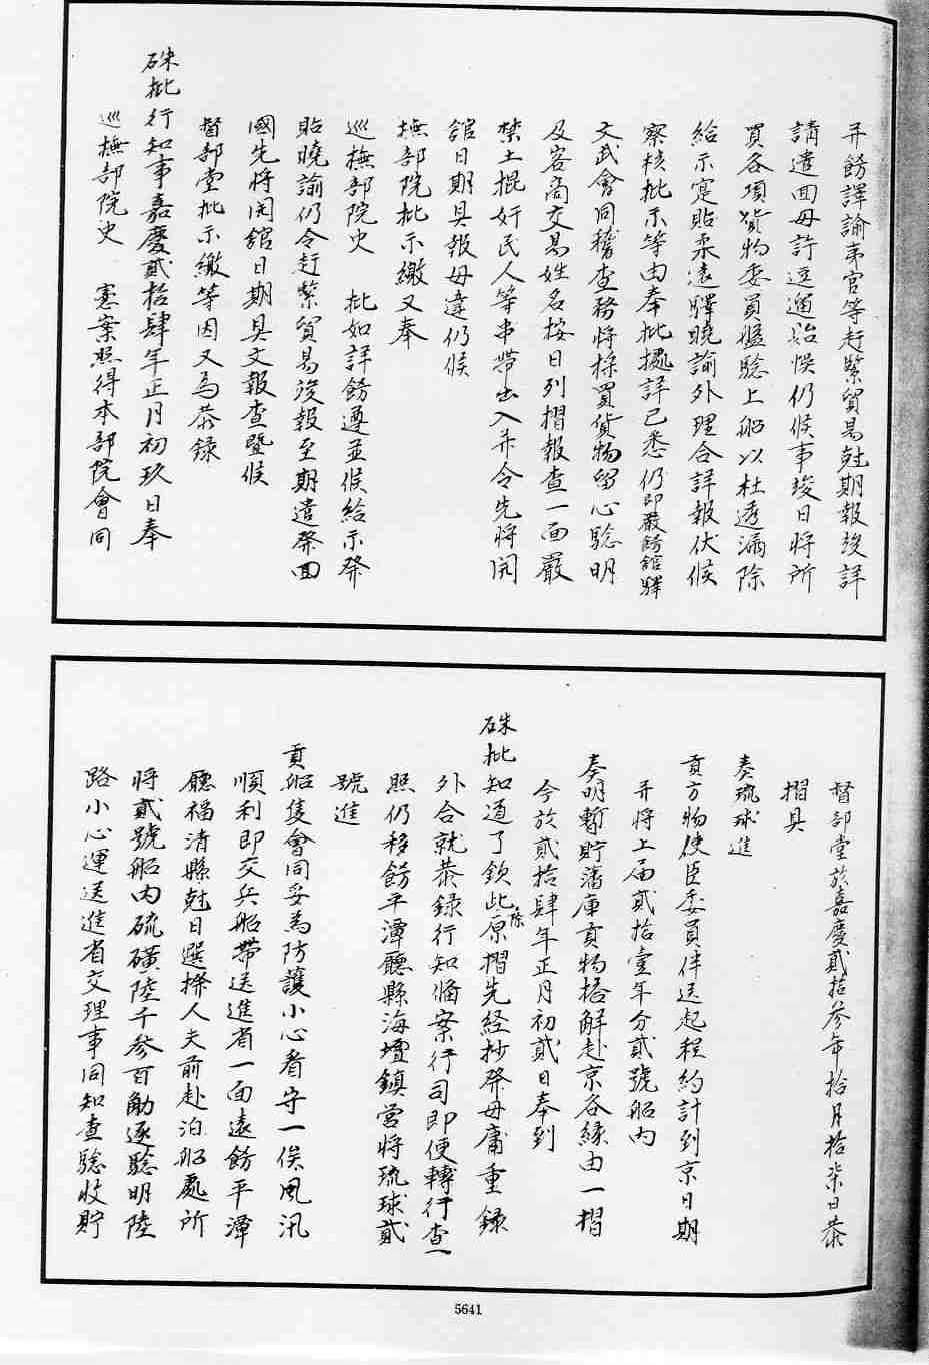 并飭譯諭夷官等赶緊貿易尅期報竣詳
請遣回毋許逗遛貽悞仍候事竣日將所
買各項貨物委員盤驗上船以杜透漏除
給示寔貼柔遠驛曉諭外理合詳報伏候
察核批示等由奉批據詳已悉仍即嚴飭舘驛
文武會同稽查務將採買貨物留心驗明
及客商交易姓名按日列摺報查一面嚴
禁土棍奸民人等串帶出入并令先將開
舘日期具報毋違仍候
撫部院批示繳又奉
巡撫部院史　批如詳飭遵並候給示發
貼曉諭仍令赶緊貿易竣報至期遣發回
國先將開舘日期具文報查暨候
督部堂批示繳等因又為恭錄
硃批行知事嘉慶貳拾肆年正月初玖日奉
巡撫部院史　憲案照得本部院會同
督部堂於嘉慶貳拾參年拾月拾柒日恭
摺具
奏琉球進
貢方物使臣委員伴送起程約計到京日期
并將上届貳拾壹年分貳號船內
奏明暫貯藩庫貢物搭解赴京各緣由一摺
今於貳拾肆年正月初貳日奉到
硃批知道了欽此除原摺先經抄發毋庸重錄
外合就恭錄行知備案行司即便轉行查
照仍移飭平潭廳縣海壇鎮營將琉球貳
號進
貢船隻會同妥為防護小心看守一俟風汛
順利即交兵船帶送進省一面遠飭平潭
廳福清縣尅日選撥人夫前赴泊船處所
將貳號船內硫磺陸千參百觔逐驗明陸
路小心運送進省交理事同知查驗收貯
5641